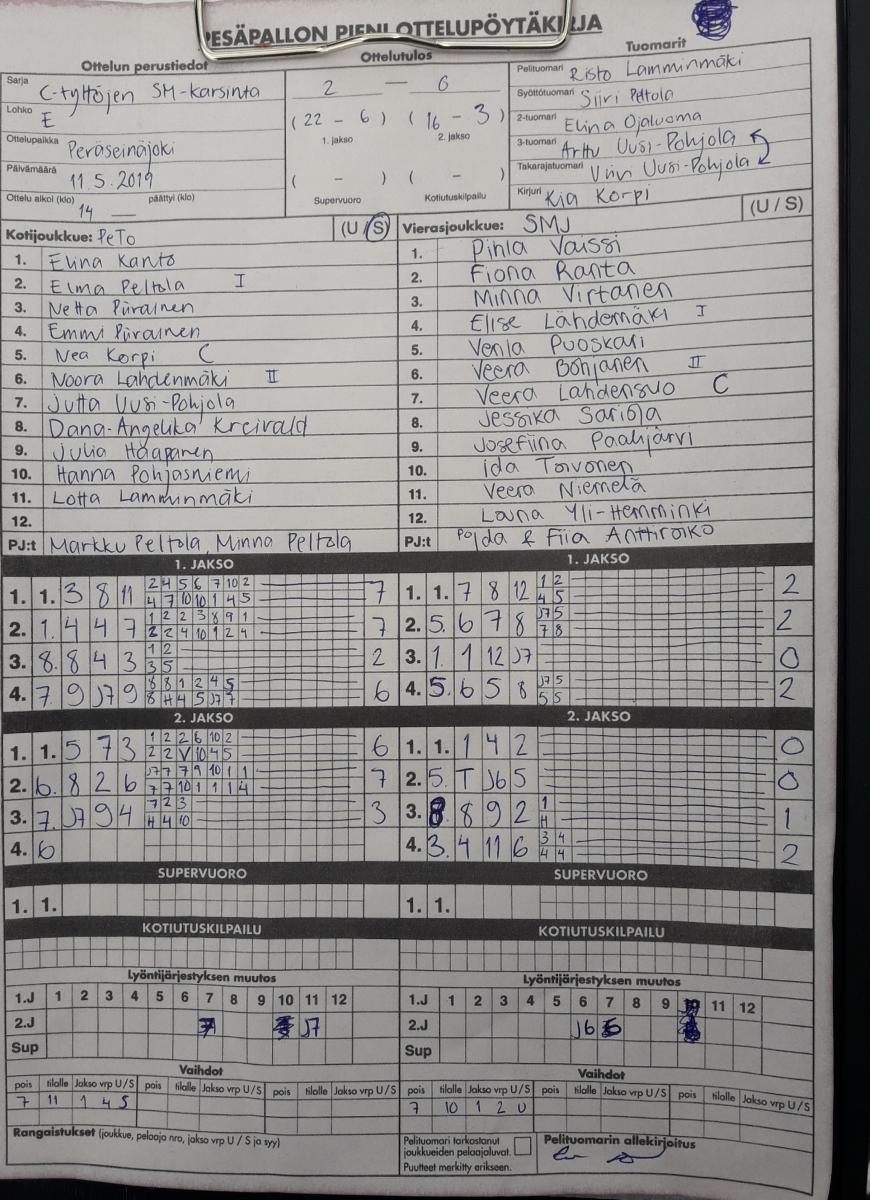 PESÄPALLON PIENI OTTELUPÖYTÄKIRJA
Ottelun perustiedot
Sarja C-tyttöjen SM-karsinta
Lohko E
Ottelupaikka Peräseinäjoki
Päivämäärä 11.5.2019
Ottelu alkoi (klo) 14 päättyi (klo)
Ottelutulos
2 — 0
(22 - 6) (16 - 3)
1. jakso 2. jakso
( - ) ( - )
Supervuoro Kotiutuskilpailu
Tuomarit
Pelituomari Risto Lamminmäki
Syöttötuomari Siiri Peltola
2-tuomari Elina Ojaluoma
3-tuomari Arttu Uusi-Pohjola
Takarajatuomari Viivi Uusi-Pohjola
Kirjuri Kia Korpi
Kotijoukkue: PeTo (U / S)
1. Elina Kanto
2. Elma Peltola I
3. Netta Piirainen
4. Emmi Piirainen
5. Nea Korpi C
6. Noora Lahdenmäki II
7. Jutta Uusi-Pohjola
8. Dana-Angelika Kreivald
9. Julia Haapanen
10. Hanna Pohjasniemi
11. Lotta Lamminmäki
12.
PJ:t Markku Peltola, Minna Peltola
Vierasjoukkue: SMJ (U / S)
1. Pihla Väissi
2. Fiona Ranta
3. Minna Virtanen
4. Elise Lähdemäki I
5. Venla Puoskari
6. Veera Bohjanen II
7. Veera Lahdensuo C
8. Jessika Sariola
9. Josefiina Paahjärvi
10. Iida Toivonen
11. Veera Niemelä
12. Louna Yli-Hemminki
PJ:t & Fiia Anttiroiko
1. JAKSO
1. 1. 3 8 11 2 4 5 6 7 10 2 7
4 7 10 10 1 4 5
2. 1. 4 4 7 1 2 2 3 8 9 1 7
2 2 4 10 1 2 4
3. 8. 8 4 3 1 2 2
3 5
4. 7. 9 J7 9 8 8 1 2 4 5 6
8 H 4 5 J7 7
1. JAKSO
1. 1. 7 8 12 1 2 2
4 5
2. 5. 6 7 8 J7 5 2
7 8
3. 1. 1 12 J7 0
4. 5. 6 5 8 J7 5 2
5 5
2. JAKSO
1. 1. 5 7 3 1 2 2 6 10 2 6
2 2 V 10 4 5
2. 6. 8 2 6 J7 7 7 9 10 1 1 7
7 7 10 1 1 1 4
3. 7. J7 9 4 7 2 3 3
H 4 10
4. 6
2. JAKSO
1. 1. 1 4 2 0
2. 5. T J6 5 0
3. 8. 8 9 2 1 1
H
4. 3. 4 11 6 3 4 2
4 4
SUPERVUORO
1. 1.
SUPERVUORO
1. 1.
KOTIUTUSKILPAILU
KOTIUTUSKILPAILU
Lyöntijärjestyksen muutos
1.J 1 2 3 4 5 6 7 8 9 10 11 12
2.J J7
Sup
Lyöntijärjestyksen muutos
1.J 1 2 3 4 5 6 7 8 9 11 12
2.J J6
Sup
Vaihdot
pois tilalle Jakso vrp U/S pois tilalle Jakso vrp U/S pois tilalle Jakso vrp U/S
7 11 1 4 S
Vaihdot
pois tilalle Jakso vrp U/S pois tilalle Jakso vrp U/S pois tilalle Jakso vrp U/S
7 10 1 2 U
Rangaistukset (joukkue, pelaaja nro, jakso vrp U / S ja syy)
Pelituomari tarkastanut
joukkueiden pelaajaluvat.
Puutteet merkitty erikseen.
Pelituomarin allekirjoitus